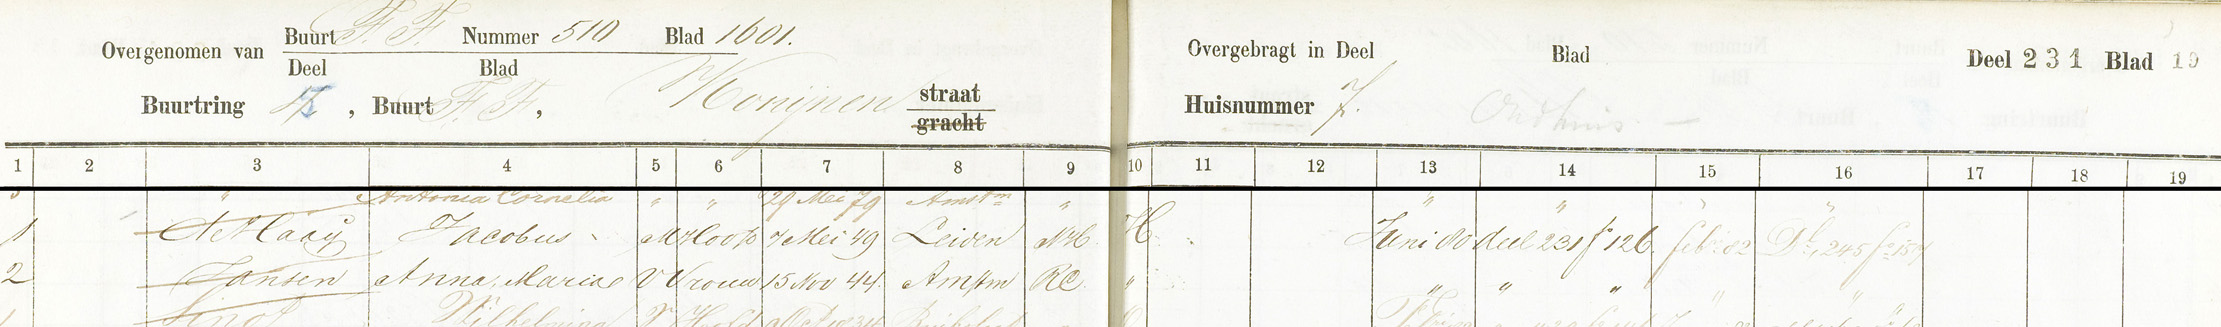 Overgenomen van Buurt F.F. Nummer 510 Blad 1601.
Deel Blad
Buurtring , Buurt F.F., Konijnen straat
gracht
Overgebragt in Deel Blad Deel 231 Blad 19
Huisnummer 7.
1 2 3 4 5 6 7 8 9 10 11 12 13 14 15 16 17 18 19
" Antonia Cornelia " " 29 Mei 79 Amstm " " " " "
1 Jacobus M Hoofd 7 Mei 49 Leiden N.H. H. Juni 80 deel 231 fo 126. feb. 82 Dl. 245 fo 157
2 Jansen Anna Maria V Vrouw 15 Nov 44. Amstm RC. " " " " " "
1 Wilhelmina V Hoofd